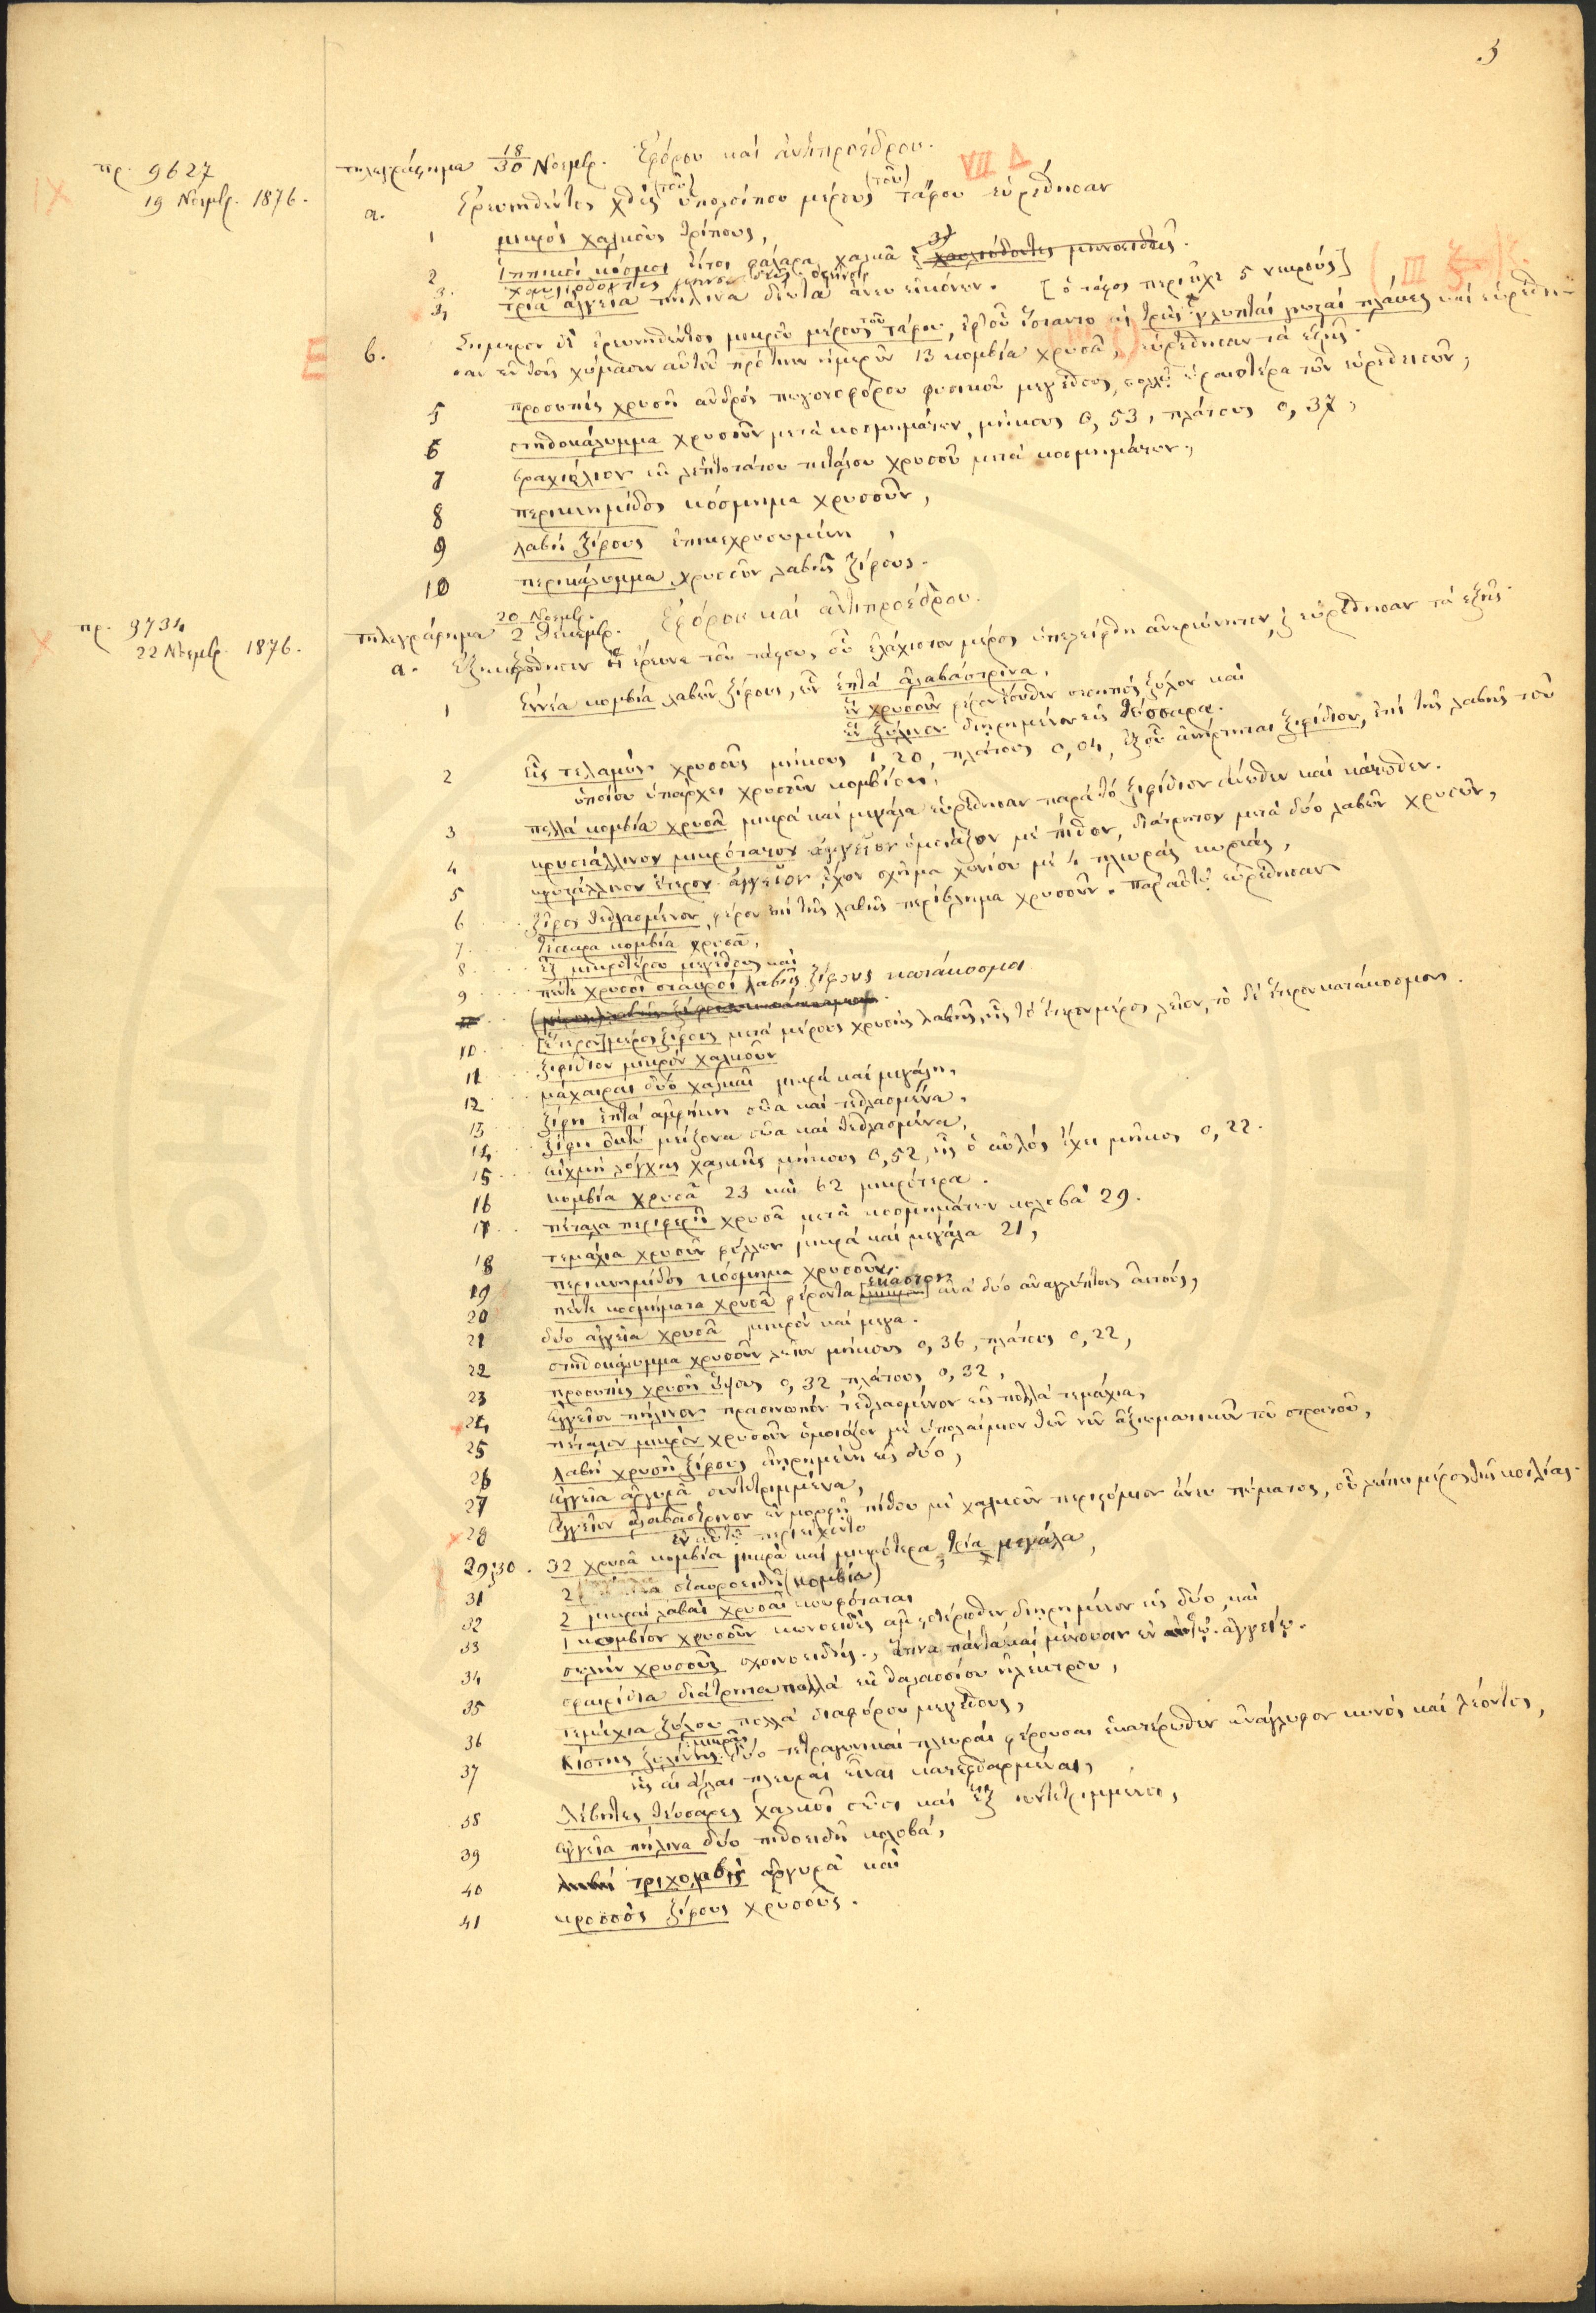 3
πρ. 9627
19 Νοεμβρ. 1876.
IX
τηλεγράφημα 18/30 Νοεμβρ. Ἐφόρου καὶ ἀντιπροέδρου.
VII Δ
α. Ἐρευνηθέντος χθὲς (τοῦ) ὑπολοίπου μέρους (τοῦ) τάφου εὑρέθησαν
1 μικρὸς χαλκοῦς τρίπους,
2 ἱππικοὶ κόσμοι ἤτοι φάλαρα χαλκᾶ
3. χαυλιόδοντες
4 τρία ἀγγεῖα πήλινα ἄνευ εἰκόνων. [ὁ τάφος περιεῖχε 5 νεκρούς]
Ε
β. Σήμερον δὲ ἐρευνηθέντος μικροῦ μέρους τοῦ τάφου, ἐφ' οὗ ἵσταντο αἱ τρεῖς γλυπταὶ πλάκες καὶ εὑρέθη-
σαν ἐν τοῖς χώμασιν αὐτοῦ πρό τινων ἡμερῶν 13 κομβία χρυσᾶ, εὑρέθησαν τὰ ἑξῆς.
5 προσωπὶς χρυσῆ ἀνδρὸς πωγονοφόρου φυσικοῦ μεγέθους, πολλῷ ὡραιοτέρα τῶν εὑρεθεισῶν,
6 στηθοκάλυμμα χρυσοῦν μετὰ κοσμημάτων, μήκους 0,53, πλάτους 0,37,
7 βραχιόλιον ἐκ λεπτοτάτου πετάλου χρυσοῦ μετὰ κοσμημάτων,
8 περικνημίδος κόσμημα χρυσοῦν,
9 λαβὴ ξίφους ἐπικεχρυσωμένη,
10 περικάλυμμα χρυσοῦν λαβῆς ξίφους.
πρ. 9734
22 Νοεμβρ. 1876.
X
τηλεγράφημα 20 Νοεμβρ. 2 Δεκεμβρ. Ἐφόρου καὶ ἀντιπροέδρου.
α. ἡ ἔρευνα τοῦ τάφου, οὗ ἐλάχιστον μέρος ὑπελείφθη ἀνερεύνητον, εὑρέθησαν τὰ ἑξῆς.
1 Ἐννέα κομβία λαβῶν ξίφους, ὧν ἑπτὰ ἀλαβάστρινα,
ἓν χρυσοῦν φέρον ἔσωθεν ξύλον καὶ
ἓν ξύλινον διῃρημένον εἰς τέσσαρα.
2 εἷς τελαμὼν χρυσοῦς μήκους 1,20, πλάτους 0,04, ἐξ οὗ ἀνήρτηται ξιφίδιον, ἐπὶ τῆς λαβῆς τοῦ
ὁποίου ὑπάρχει χρυσοῦν κομβίον,
3 πολλὰ κομβία χρυσᾶ μικρὰ καὶ μεγάλα εὑρέθησαν παρὰ τὸ ξιφίδιον ἄνωθεν καὶ κάτωθεν.
4 κρυστάλλινον μικρότατον ἀγγεῖον ὁμοιάζον μὲ πίθον, διάτρητον μετὰ δύο λαβῶν χρυσῶν,
5 κρυστάλλινον ἕτερον ἀγγεῖον ἔχον σχῆμα χωνίου μὲ 4 πλευρὰς κυρίας,
6 ξίφος τεθλασμένον φέρον ἐπὶ τῆς λαβῆς περίβλημα χρυσοῦν. παρ' αὐτῷ εὑρέθησαν
7. τέσσαρα κομβία χρυσᾶ,
8. ἓξ μικροτέρου μεγέθους καὶ
9 πέντε χρυσοῖ σταυροὶ λαβῆς ξίφους κατάκοσμοι
10. [ἕτερον] μέρος ξίφους μετὰ μέρους χρυσῆς λαβῆς, ἧς τὸ ἕτερον μέρος λεῖον, τὸ δὲ ἕτερον κατάκοσμον.
11 ξιφίδιον μικρὸν χαλκοῦν
12 μάχαιραι δύο χαλκαῖ μικρὰ καὶ μεγάλη,
13 ξίφη ἑπτὰ ἀμφήκη σῶα καὶ τεθλασμένα,
14 ξίφη ὀκτὼ μείζονα σῶα καὶ τεθλασμένα,
15 αἰχμὴ λόγχης χαλκῆς μήκους 0,52, ἧς ὁ αὐλὸς ἔχει μῆκος 0,22.
16 κομβία χρυσᾶ 23 καὶ 62 μικρότερα.
17 πέταλα περιφερῆ χρυσᾶ μετὰ κοσμημάτων κολοβὰ 29.
18 τεμάχια χρυσῶν φύλλων μικρὰ καὶ μεγάλα 21,
19 περικνημίδος κόσμημα χρυσοῦν,
20 πέντε κοσμήματα χρυσᾶ φέροντα ἕκαστον ἀνὰ δύο ἀναγλύπτους ἀετούς,
21 δύο ἀγγεῖα χρυσᾶ μικρὸν καὶ μέγα.
22 στηθοκάλυμμα χρυσοῦν λεῖον μήκους 0,36, πλάτους 0,22,
23 προσωπὶς χρυσῆ ὕψους 0,32 πλάτους 0,32,
24 ἀγγεῖον πήλινον πρασινωπὸν τεθλασμένον εἰς πολλὰ τεμάχια,
25 πέταλον μικρὸν χρυσοῦν ὁμοιάζον μὲ ὑπολαίμιον τῶν νῦν ἀξιωματικῶν τοῦ στρατοῦ,
26 λαβὴ χρυσῆ ξίφους διῃρημένη εἰς δύο,
27 ἀγγεῖα ἀργυρᾶ συντετριμμένα,
28 ἀγγεῖον ἀλαβάστρινον ἐν μορφῇ πίθου μὲ χαλκοῦν περιστόμιον ἄνευ πώματος, οὗ λείπει μέρος τῆς κοιλίας.
ἐν αὐτῷ περιείχοντο
29, 30. 32 χρυσᾶ κομβία μικρὰ καὶ μικρότερα, τρία μεγάλα,
31 2 σταυροειδῆ (κομβία)
32 2 μικραὶ λαβαὶ χρυσαῖ κουφόταται
33 1 κομβίον χρυσοῦν κωνοειδὲς ἀμφοτέρωθεν διῃρημένον εἰς δύο, καὶ
34 σωλὴν χρυσοῦς σχοινοειδής, ἅτινα πάντα καὶ μένουσιν ἐν αὐτῷ ἀγγείῳ.
35 σφαιρίδια διάτρητα πολλὰ ἐκ θαλασσίου ἠλέκτρου,
36 τεμάχια ξύλου πολλὰ διαφόρου μεγέθους,
37 Κίστης ξυλίνης μικρᾶς δύο τετραγωνικαὶ πλευραὶ φέρουσαι ἑκατέρωθεν ἀνάγλυφον κυνὸς καὶ λέοντος,
ἧς αἱ ἄλλαι πλευραὶ εἶναι κατεφθαρμέναι,
38 λέβητες τέσσαρες χαλκοῖ σῶοι καὶ ἓξ συντετριμμένοι,
39 ἀγγεῖα πήλινα δύο πιθοειδῆ κολοβά,
40 τριχολαβὶς ἀργυρᾶ καὶ
41 κροσσὸς ξίφους χρυσοῦς.